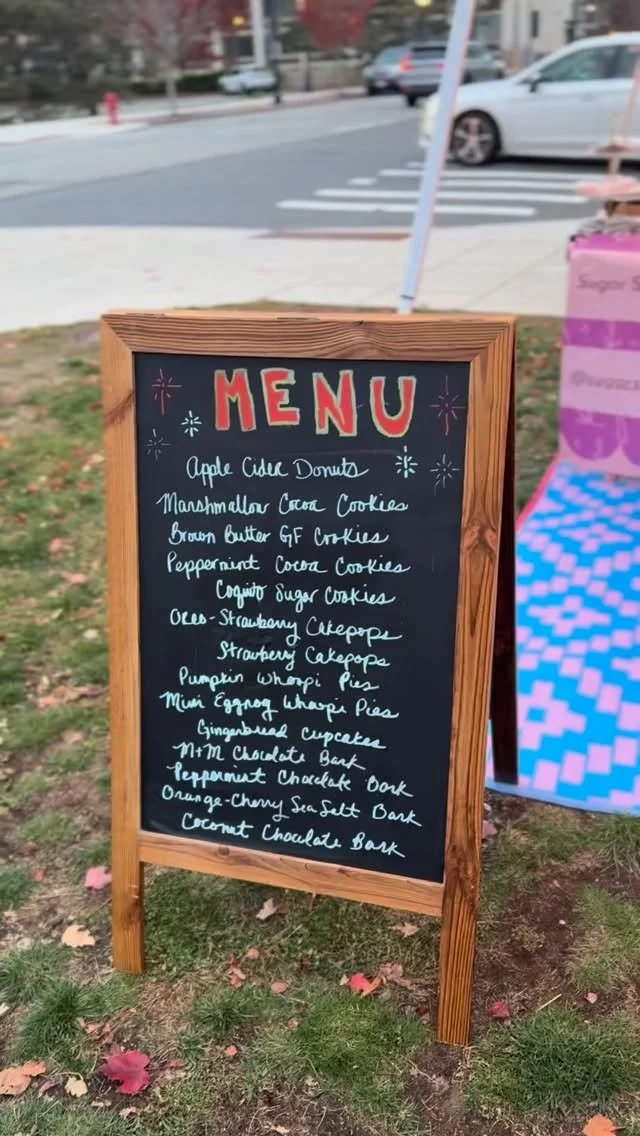 MENU
Apple Cider Donuts
Marshmallow Cocoa Cookies
Brown Butter GF Cookies
Peppermint Cocoa Cookies
Coquito Sugar Cookies
Oreo-Strawberry Cakepops
Strawberry Cakepops
Pumpkin Whoopi Pies
Mini Eggnog Whoopi Pies
Gingerbread Cupcakes
M+M Chocolate Bark
Peppermint Chocolate Bark
Orange-Cherry Sea Salt Bark
Coconut Chocolate Bark
Sugar